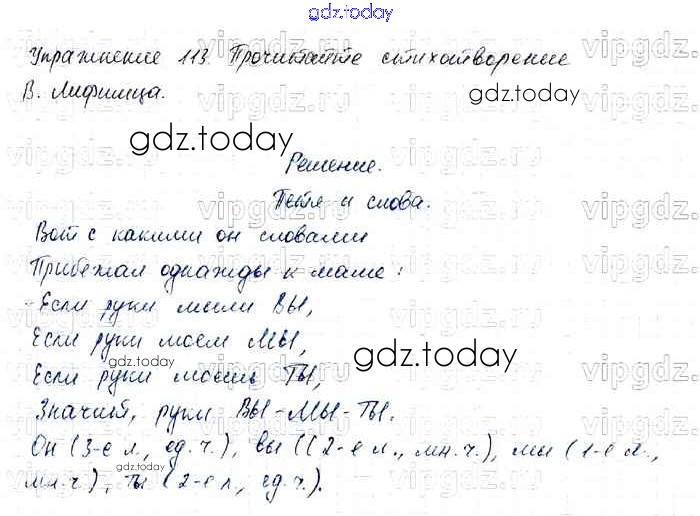 gdz.today
Упражнение 113. Прочитайте стихотворение
В. Лифшица.
gdz.today
Решение.
Петя и слова.
Вот с какими он словами
Прибежал однажды к маме:
-Если руки мыли ВЫ,
Если руки моем МЫ,
gdz.today
Если руки моешь ТЫ,
Значит, руки ВЫ-МЫ-ТЫ.
Он (3-е л., ед.ч.), вы ((2-е л., мн.ч.), мы (1-е л.,
gdz.today
мн.ч), ты (2-е л., ед.ч.).
vipgdz.ru